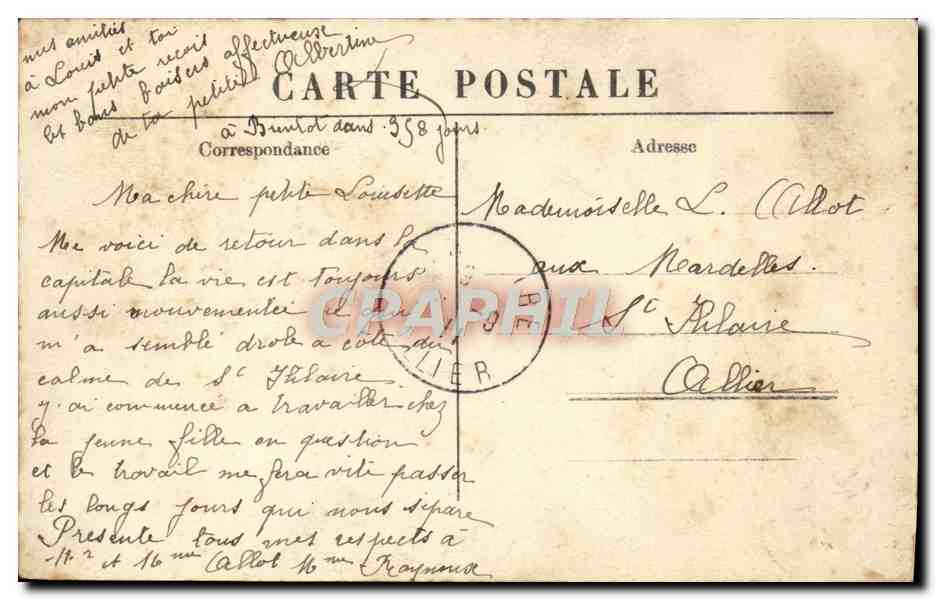 CARTE POSTALE
Correspondance
Adresse
Ma chère petite Louisette
Me voici de retour dans la
capitale la vie est toujours
aussi mouvementée et qui
m'a semblé drole a côté du
calme de St Hilaire
j'ai commencé a travailler chez
la jeune fille en question
et le travail me fera vite passer
les longs jours qui nous sépare
Presente tous mes respects à
Mr et Mme Allot Mme
mes amitiés
à Louis et toi
mon petite reçois
les bons baisers affectueux
de ta petite Albertine
à Bientot dans 358 jours
Mademoiselle L. Allot
aux Mardelles.
St Hilaire
Allier
LIER
CPAPHIL